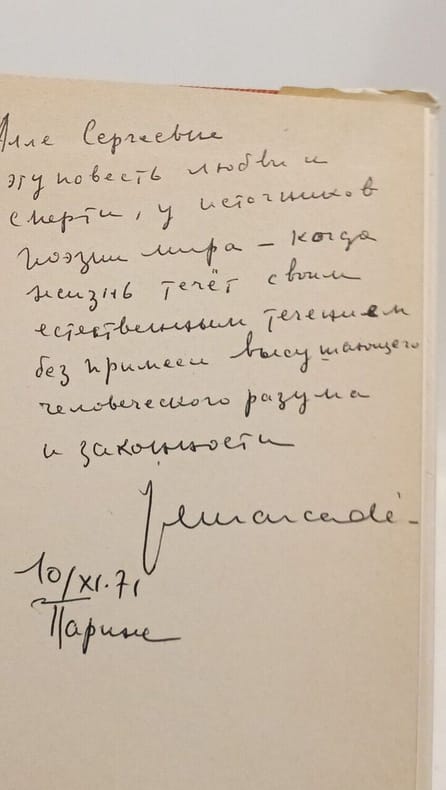 Алле Сергеевне
эту повесть любви и
смерти, у источников
поэзии мира – когда
жизнь течёт своим
естественным течением
без примеси высушающего
человеческого разума
и законности
JCMarcadé
10/XI.71
Париж